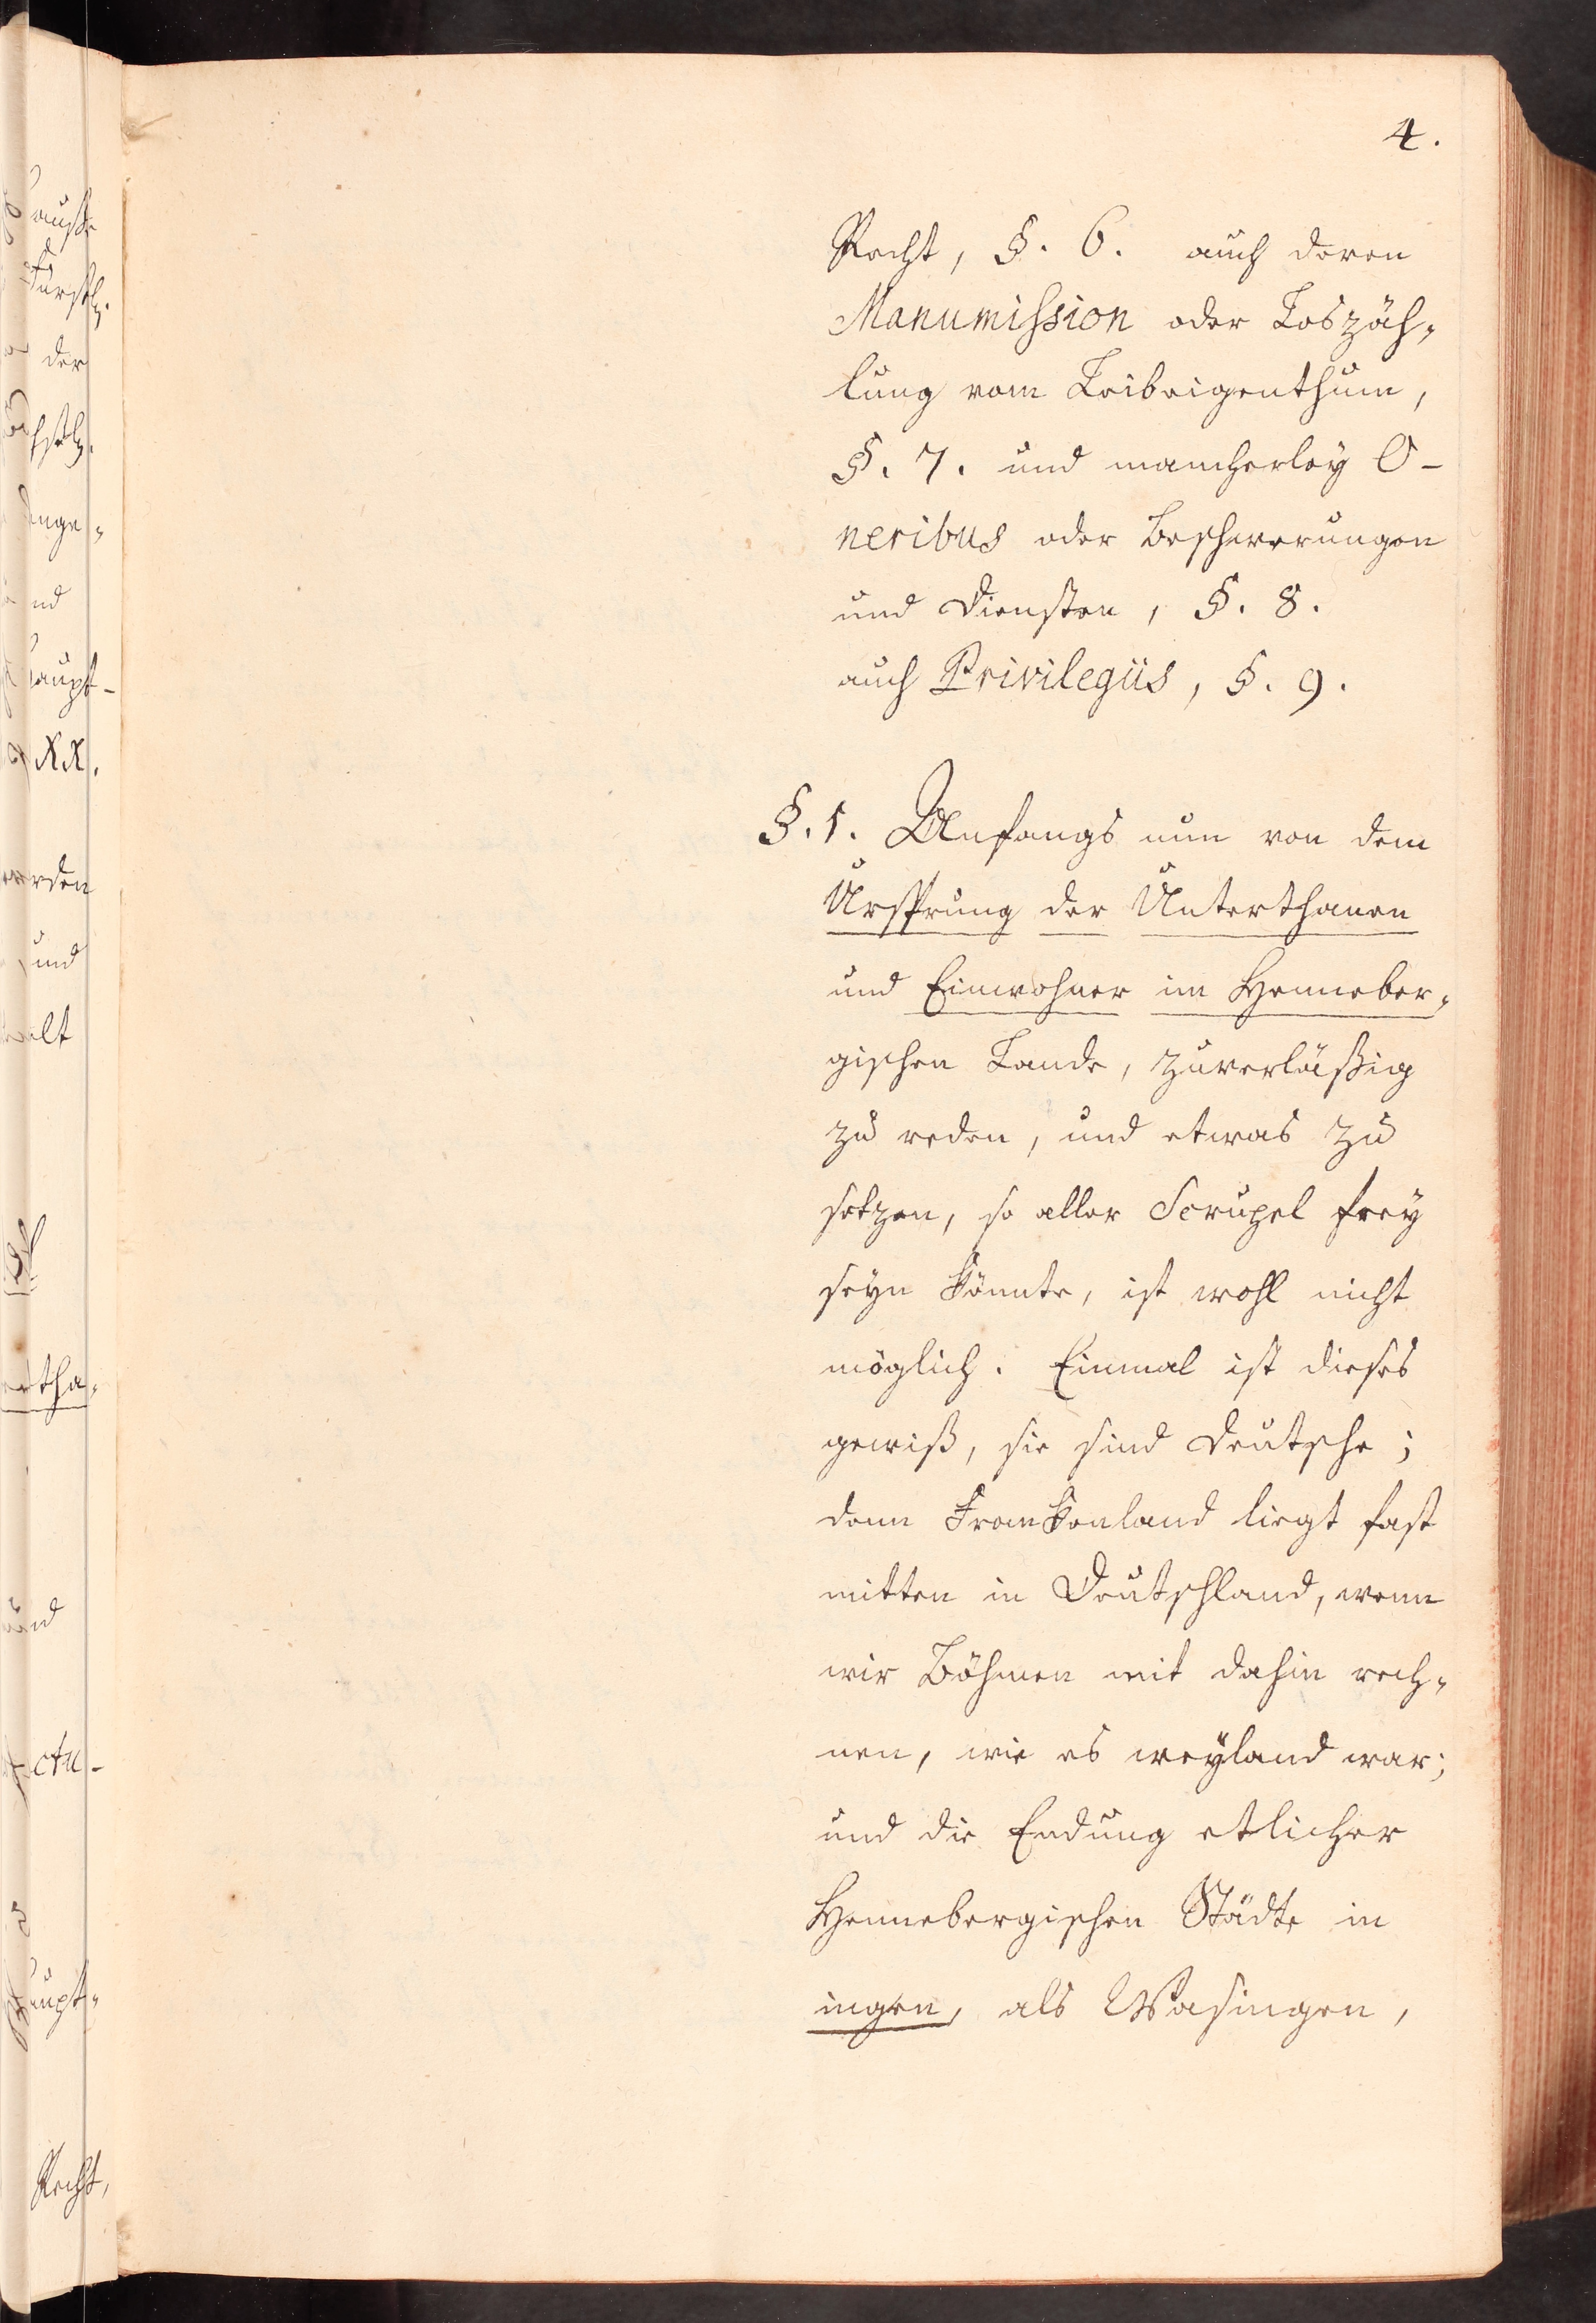 4.
Recht, §. 6. auch deren
Manumission oder Loszäh-
lung vom Leibeigenthum,
§. 7. und mancherley O-
neribus oder Beschwerungen
und Diensten, §. 8.
auch Privilegiis, §. 9.
§. 1. Anfangs nun von dem
Ursprung der Unterthanen
und Einwohner im Henneber-
gischen Lande, zuverläßig
zu reden, und etwas zu
setzen, so aller Scrupel frey
seyn könnte, ist wohl nicht
möglich. Einmal ist dieses
gewiß, sie sind Deutsche;
denn Frankenland liegt fast
mitten in Deutschland, wenn
wir Böhmen mit dahin rech-
nen, wie es weyland war;
und die Endung etlicher
Hennebergischen Städte in
ingen, als Wasingen,